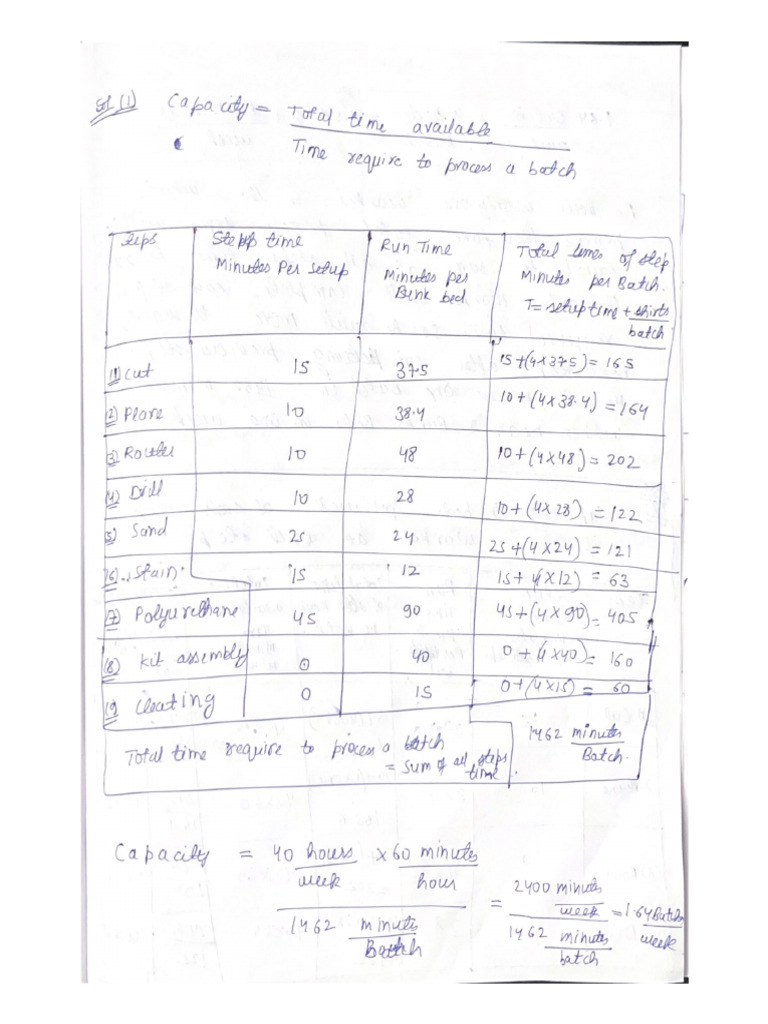 Sol (1) Capacity = Total time available
Time require to process a batch
Steps | Step time Minutes Per setup | Run Time Minutes per Bunk bed | Total times of step Minutes per Batch. T= setup time + shirts/batch
(1) cut | 15 | 37.5 | 15+(4x375)= 165
(2) Plane | 10 | 38.4 | 10+(4x38.4) = 164
(3) Router | 10 | 48 | 10+(4x48)= 202
(4) Drill | 10 | 28 | 10+(4x28) = 122
(5) Sand | 25 | 24 | 25+(4x24) = 121
(6) Stain | 15 | 12 | 15+ 4x12) = 63
(7) Polyurethane | 45 | 90 | 45+(4x90)= 405
(8) kit assembly | 0 | 40 | 0+(4x40)= 160
(9) Cleating | 0 | 15 | 0+(4x15)= 60
Total time require to process a batch = Sum of all steps time | 1462 minutes/Batch.
Capacity = 40 hours/week x 60 minutes/hour
1462 minutes/Batch
= 2400 minutes/week
1462 minutes/batch
= 1.64 Batches/week